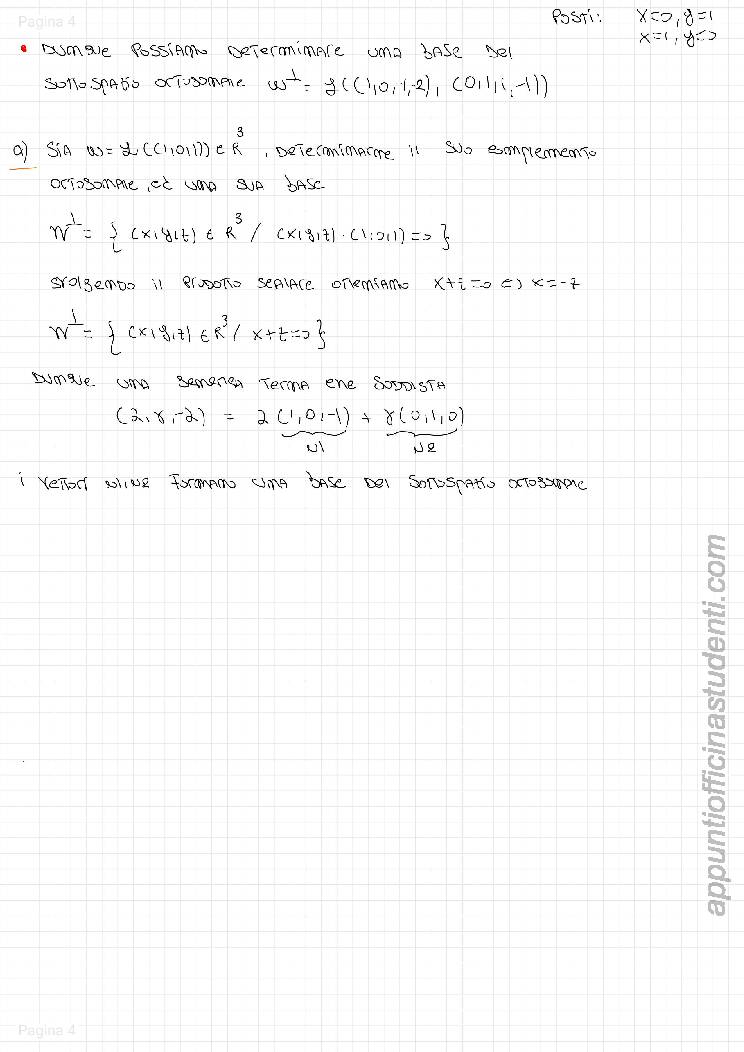 Pagina 4
POSTI: x=0, y=1
x=1, y=0
DUNQUE POSSIAMO DETERMINARE UNA BASE DEL
SOTTOSPAZIO ORTOGONALE W⊥ = L((1,0,1,-2), (0,1,1,-1))
a) SIA W = L((1,0,1)) ∈ R³, DETERMINARNE IL SUO COMPLEMENTO
ORTOGONALE, ED UNA SUA BASE
W⊥ = { (x,y,z) ∈ R³ / (x,y,z)·(1,0,1)=0 }
SVOLGENDO IL PRODOTTO SCALARE OTTENIAMO x+z=0 <=> x=-z
W⊥ = { (x,y,z) ∈ R³ / x+z=0 }
DUNQUE UNA GENERICA TERNA CHE SODDISFA
(2,γ,-2) = 2(1,0,-1) + γ(0,1,0)
N1 N2
I VETTORI N1,N2 FORMANO UNA BASE DEL SOTTOSPAZIO ORTOGONALE
appuntiofficinastudenti.com
Pagina 4